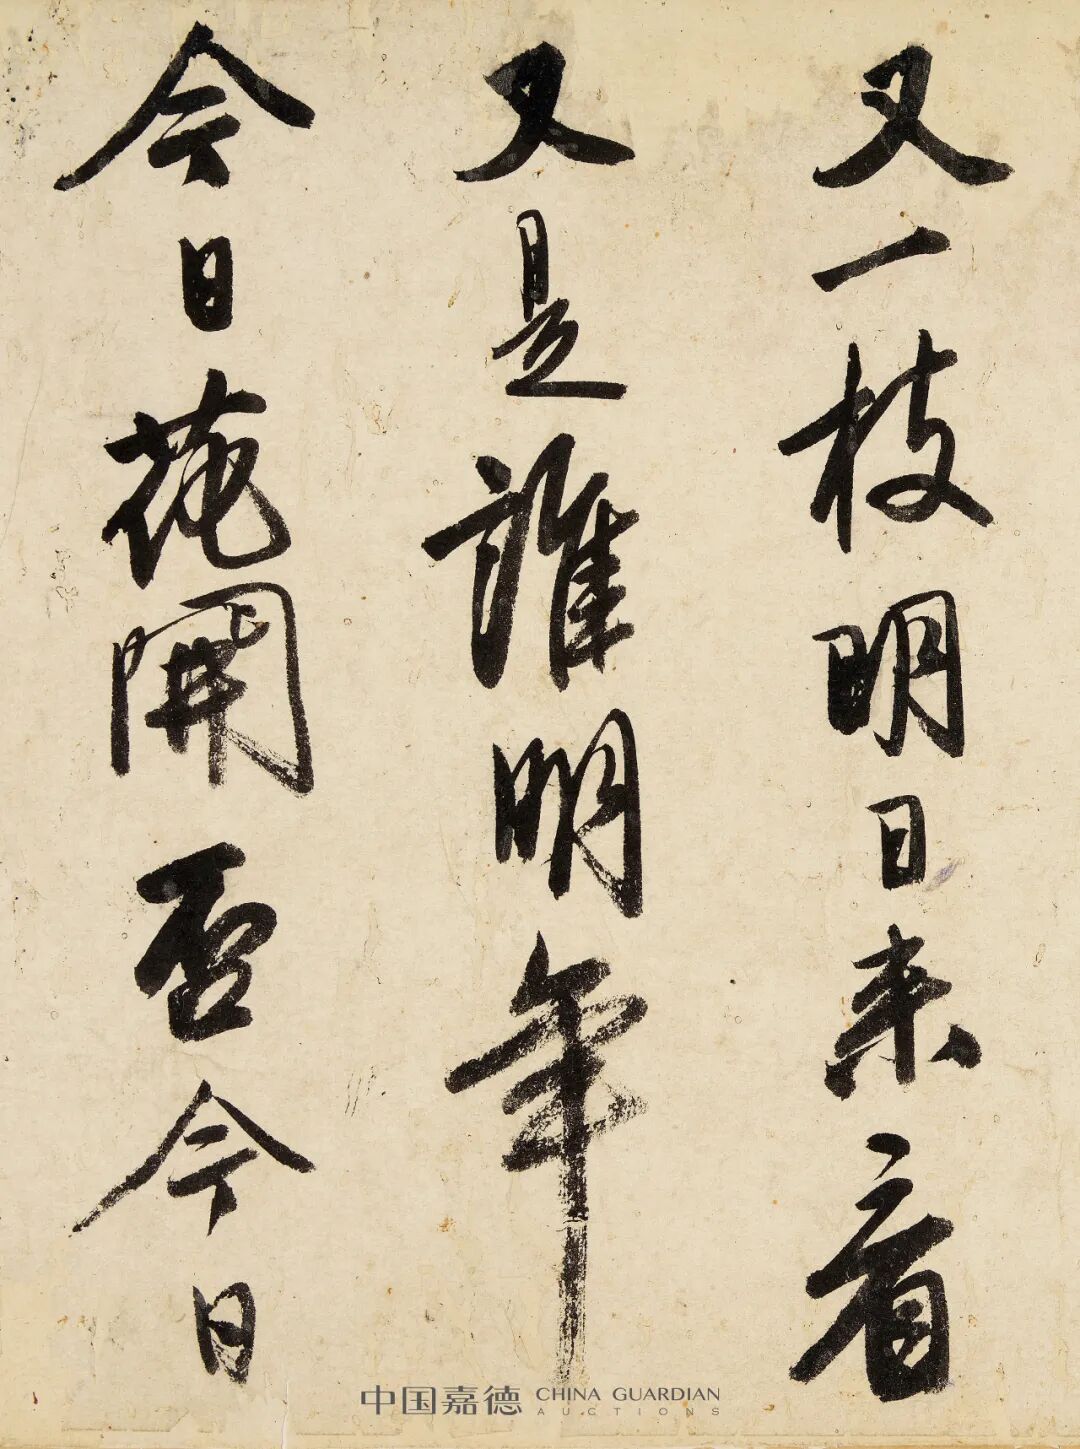 又一枝明日来看
又是誰明年
今日花開否今日
中国嘉德 CHINA GUARDIAN
AUCTIONS